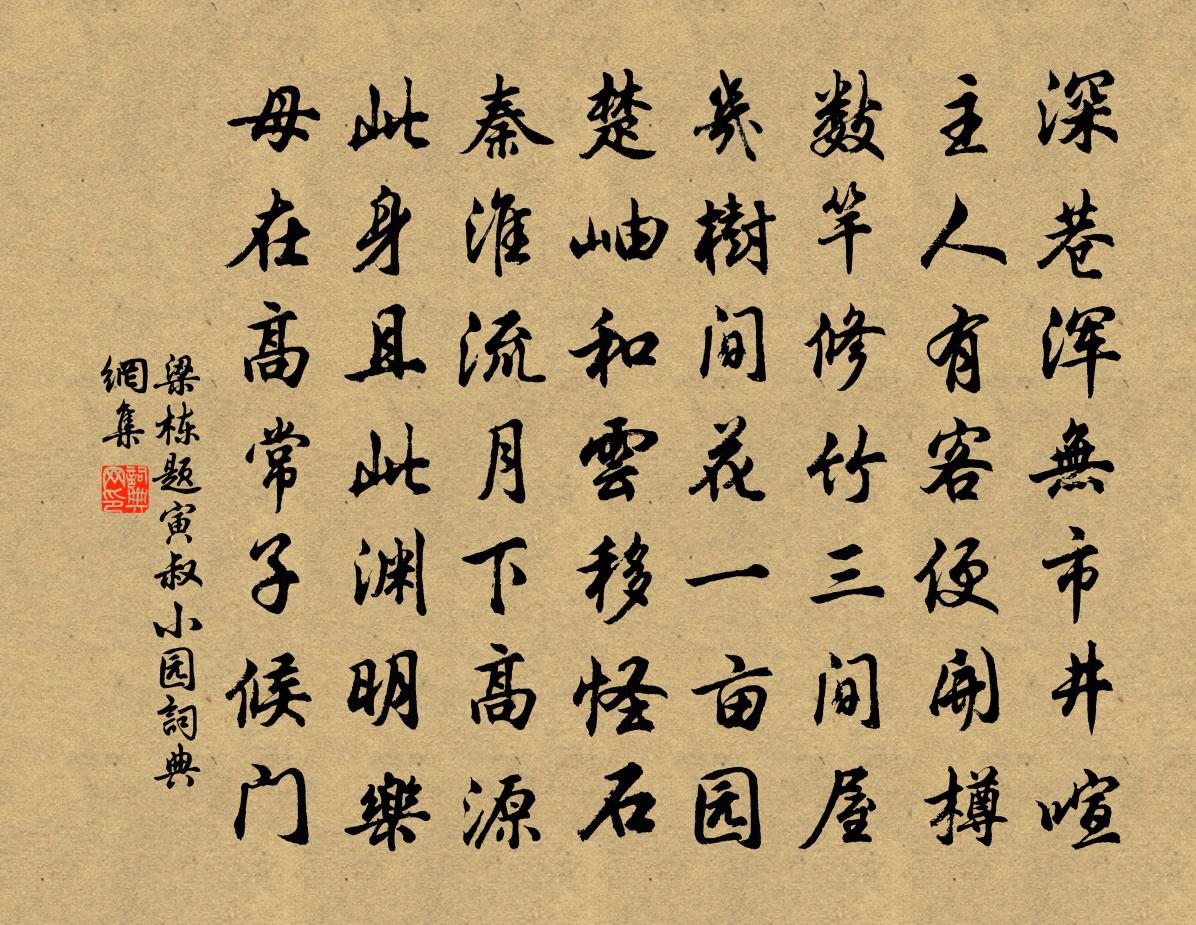 深巷浑無市井喧
主人有客便開樽
数竿修竹三间屋
幾樹间花一亩园
楚岫和雲移怪石
秦淮流月下高源
此身且此渊明樂
母在高常子候门
梁栋题寅叔小园詞典
網集
詞典
网印